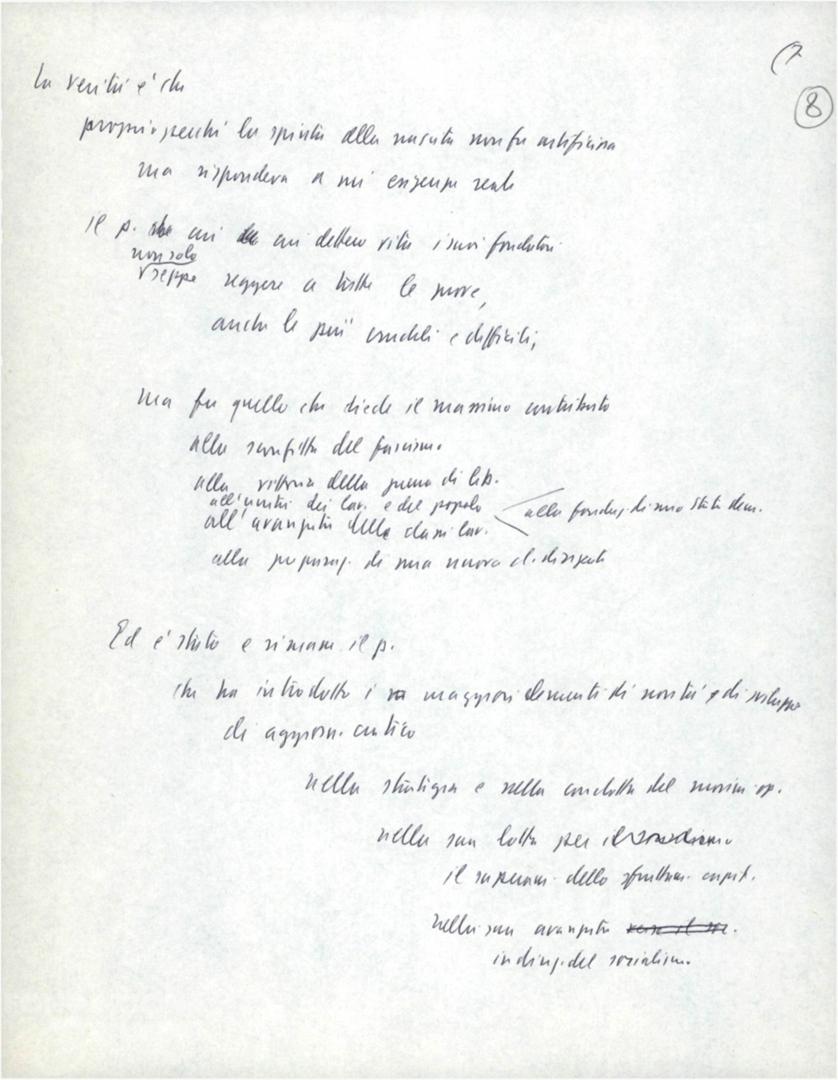 (7
8
La verità è che
proprio perché la spinta alla nascita non fu artificiosa
ma rispondeva a un'esigenza reale
il p. cui dettero vita i suoi fondatori
non solo
seppe reggere a tutte le prove,
anche le più crudeli e difficili,
ma fu quello che diede il massimo contributo
alla sconfitta del fascismo
alla vittoria della guerra di lib.
all'unità dei lav. e del popolo
alla fondaz. di uno Stato dem.
all'avanzata delle classi lav.
alla preparaz. di una nuova cl. dirigente
Ed è stato e rimane il p.
che ha introdotto i maggiori elementi di novità e di sviluppo
di aggiorn. critico
nella strategia e nella condotta del movim. op.
nella sua lotta per il
il superam. dello sfruttam. capit.
nella sua avanzata
in direz. del socialismo.